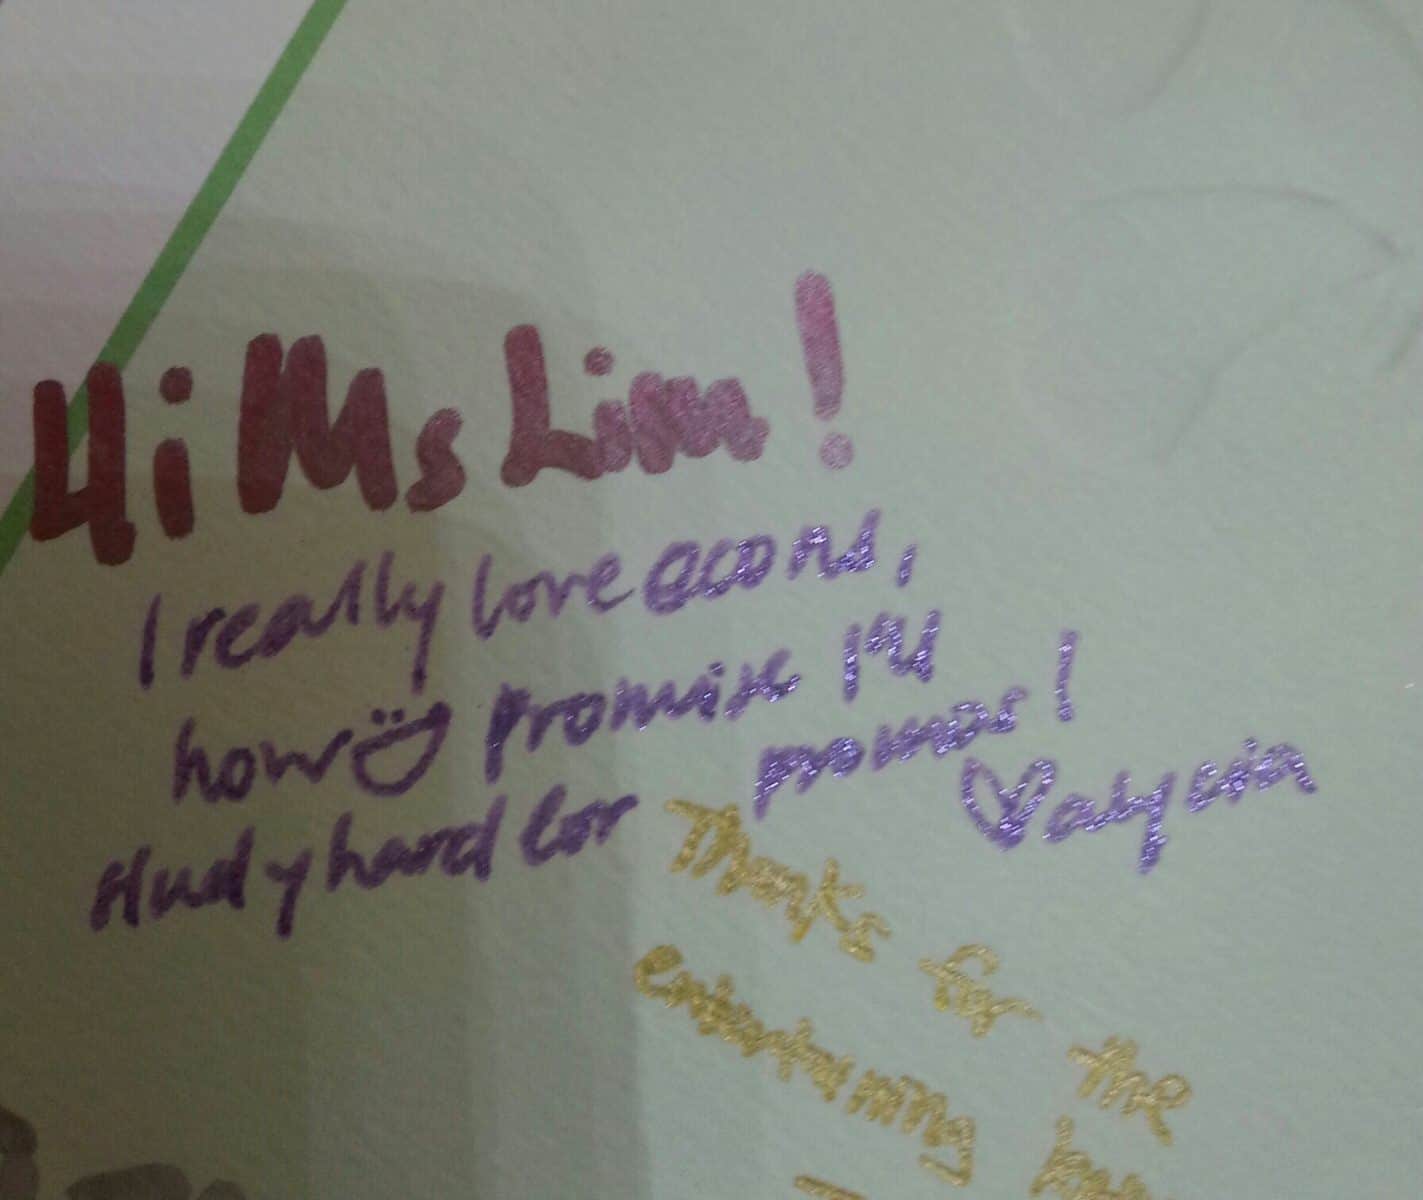 Hi Ms Lim!
I really love econs,
now promise I'll
study hard for promos!
alycia
Thanks for the
entertaining